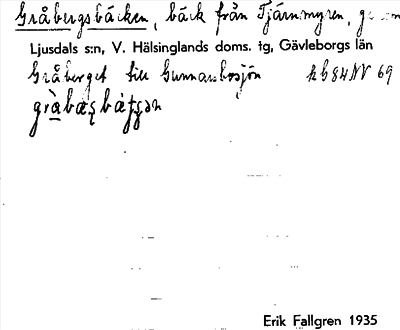 Gråbergsbäcken, bäck från Tjärnmyren, genom
Ljusdals s:n, V. Hälsinglands doms. tg, Gävleborgs län
Gråberget till Gunnarsbosjön hb 84 NV 69
Erik Fallgren 1935